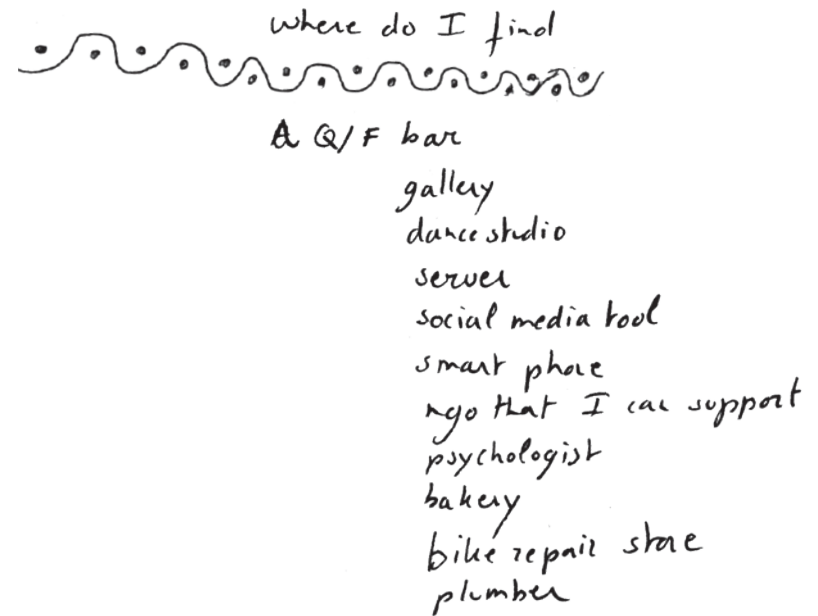 where do I find
A Q/F bar
gallery
dance studio
server
social media tool
smart phone
ngo that I can support
psychologist
bakery
bike repair store
plumber